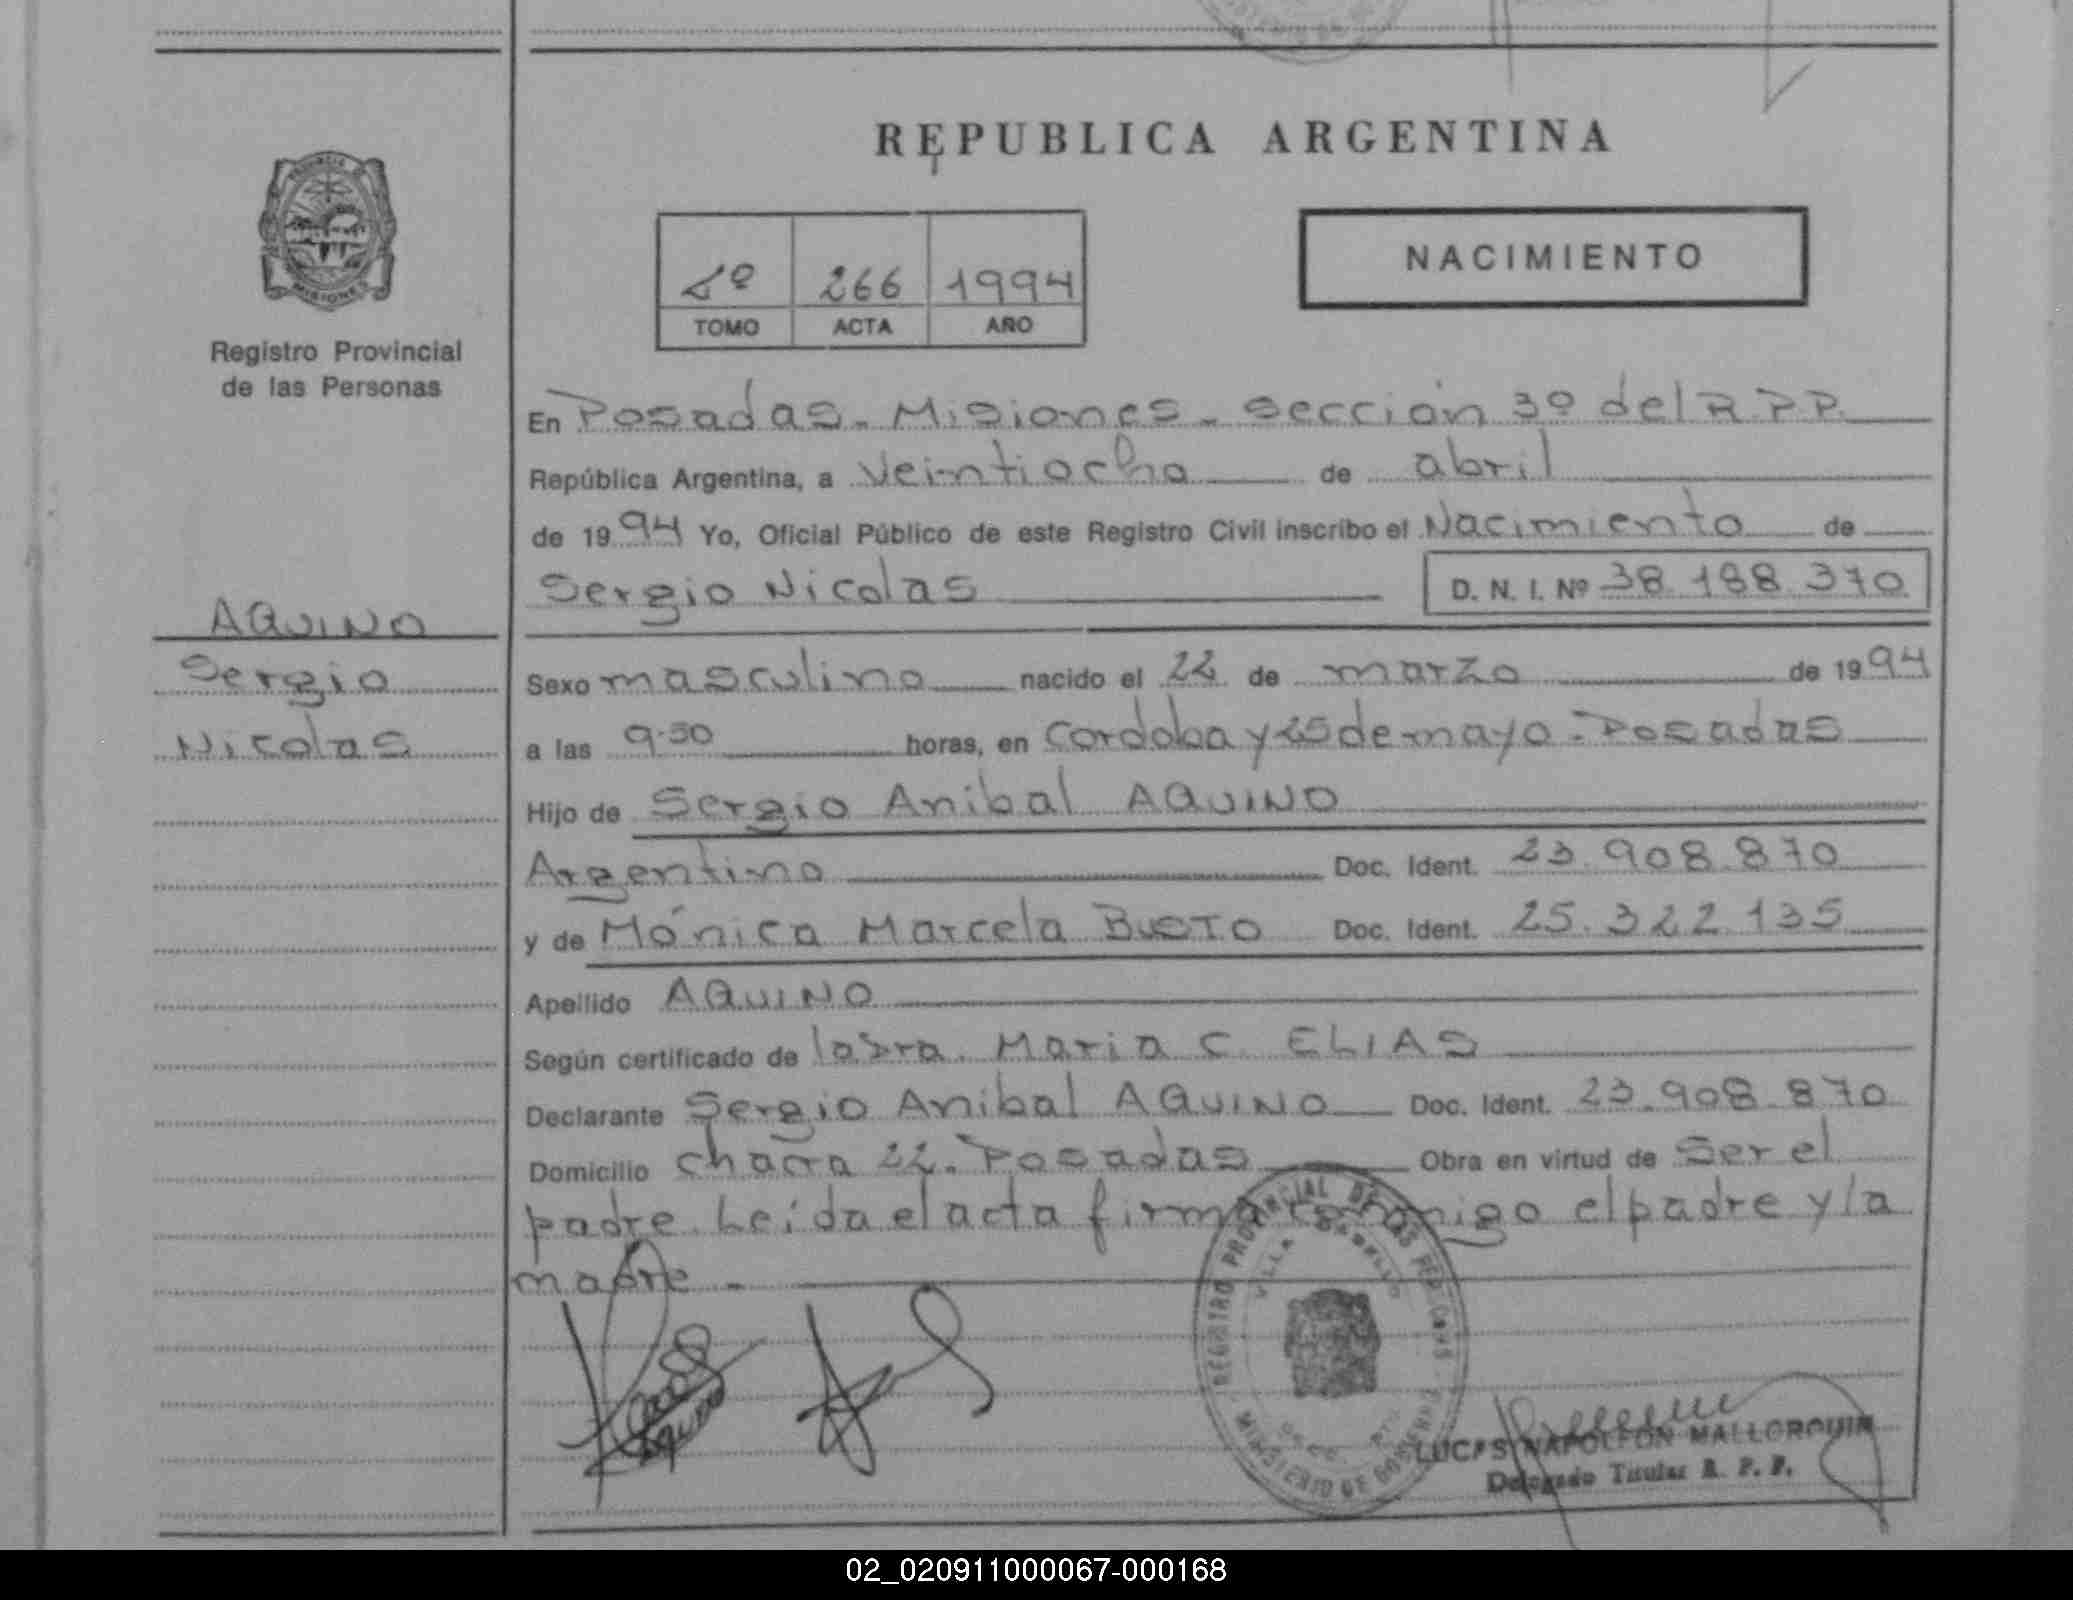 REPUBLICA ARGENTINA
PROVINCIA
MISIONES
Registro Provincial
de las Personas
266 1994
TOMO ACTA AÑO
NACIMIENTO
En Posadas - Misiones - Sección 3º del R.P.P.
República Argentina, a veintiocho de abril
de 1994 Yo, Oficial Público de este Registro Civil inscribo el Nacimiento de
Sergio Nicolas D. N. I. Nº 38.188.370
AQUINO
Sergio
Nicolas
Sexo masculino nacido el 22 de marzo de 1994
a las 9.50 horas, en Cordoba y 25 de mayo - Posadas
Hijo de Sergio Anibal AQUINO
Argentino Doc. Ident. 23.908.870
y de Mónica Marcela BUSTO Doc. Ident. 25.322.135
Apellido AQUINO
Según certificado de la Dra. Maria C. ELIAS
Declarante Sergio Anibal AQUINO Doc. Ident. 23.908.870
Domicilio chacra 22. Posadas Obra en virtud de Ser el
padre. Leída el acta firma conmigo el padre y la
madre -
REGISTRO PROVINCIAL DE LAS PERSONAS
VILLA CABELLO
MINISTERIO DE GOBIERNO
LUCAS NAPOLEON MALLORQUIN
Delegado Titular R. P. P.
02_020911000067-000168